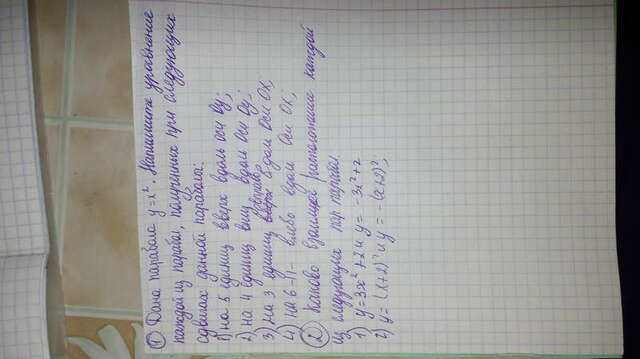 ① Дана парабола y=x². Напишите уравнение
каждой из парабол, полученных при следующих
сдвигах данной параболы:
1) на 5 единиц вверх вдоль оси Oy;
2) на 4 единиц вниз вдоль оси Oy;
3) на 3 единиц вправо вдоль оси OX;
4) на 6 -//- влево вдоль оси OX;
② Каково взаимное расположение каждой
из следующих пар парабол
1) y=3x²+2 и y=-3x²+2
2) y=(x+2)² и y=-(x+2)²;